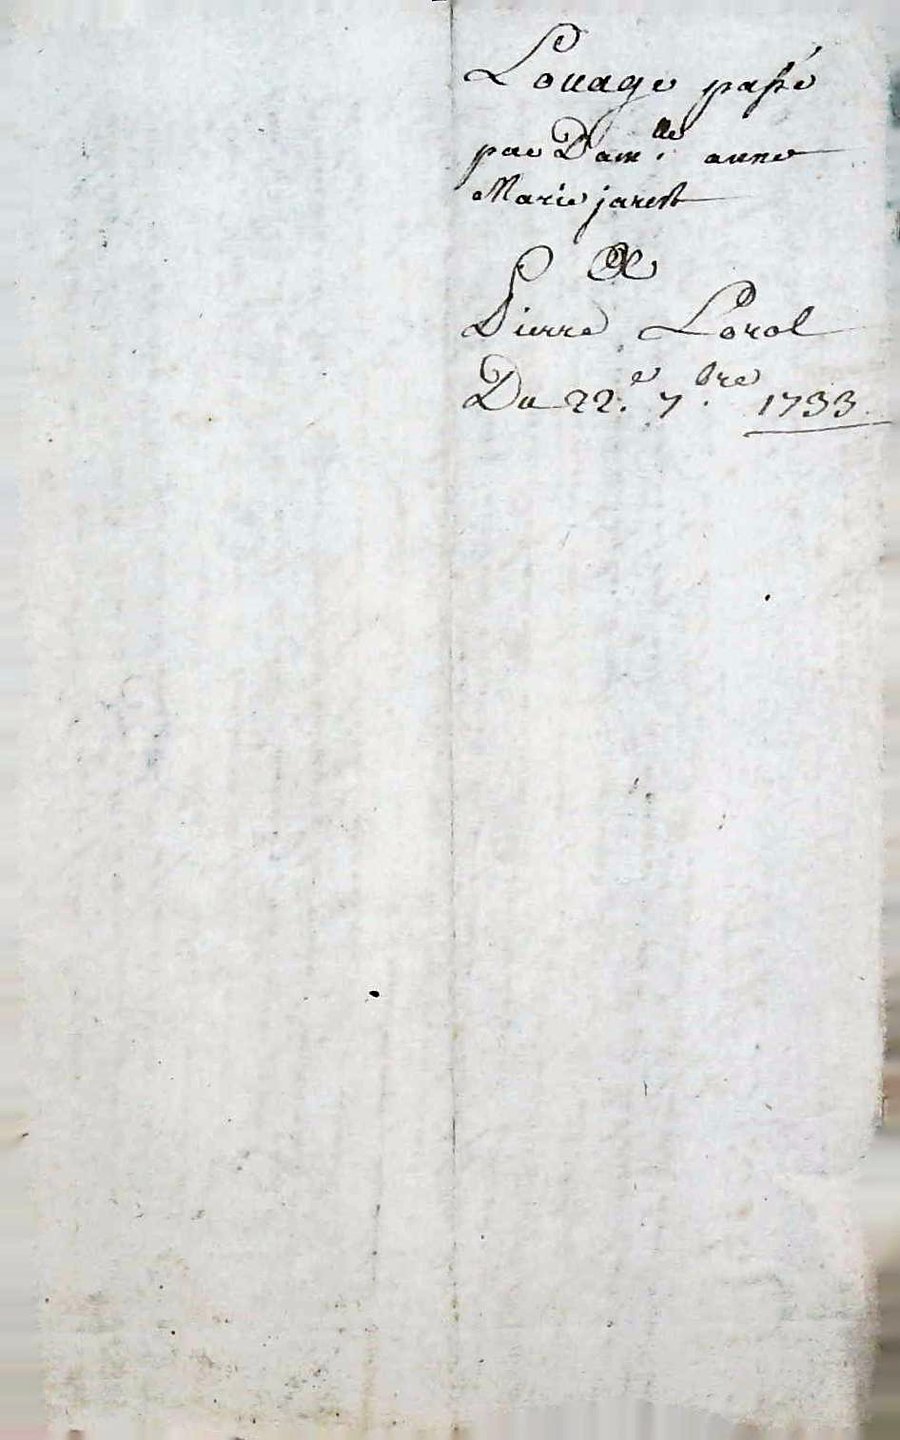 Louage passé
par Dam.lle anne
Marie jarest
A
Pierre Lorol
Du 22.e 7.bre 1733